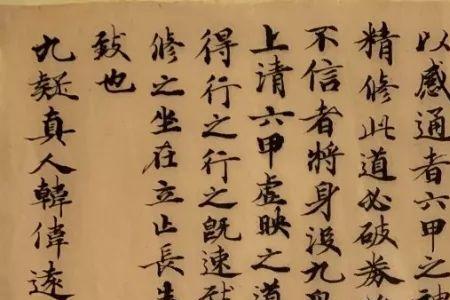 以感通者六甲之神
精脩此道必破券
不信者將身没九
上清六甲虛映之道
得行之行之既速
脩之坐在立亡長生
致也
九疑真人韓偉遠